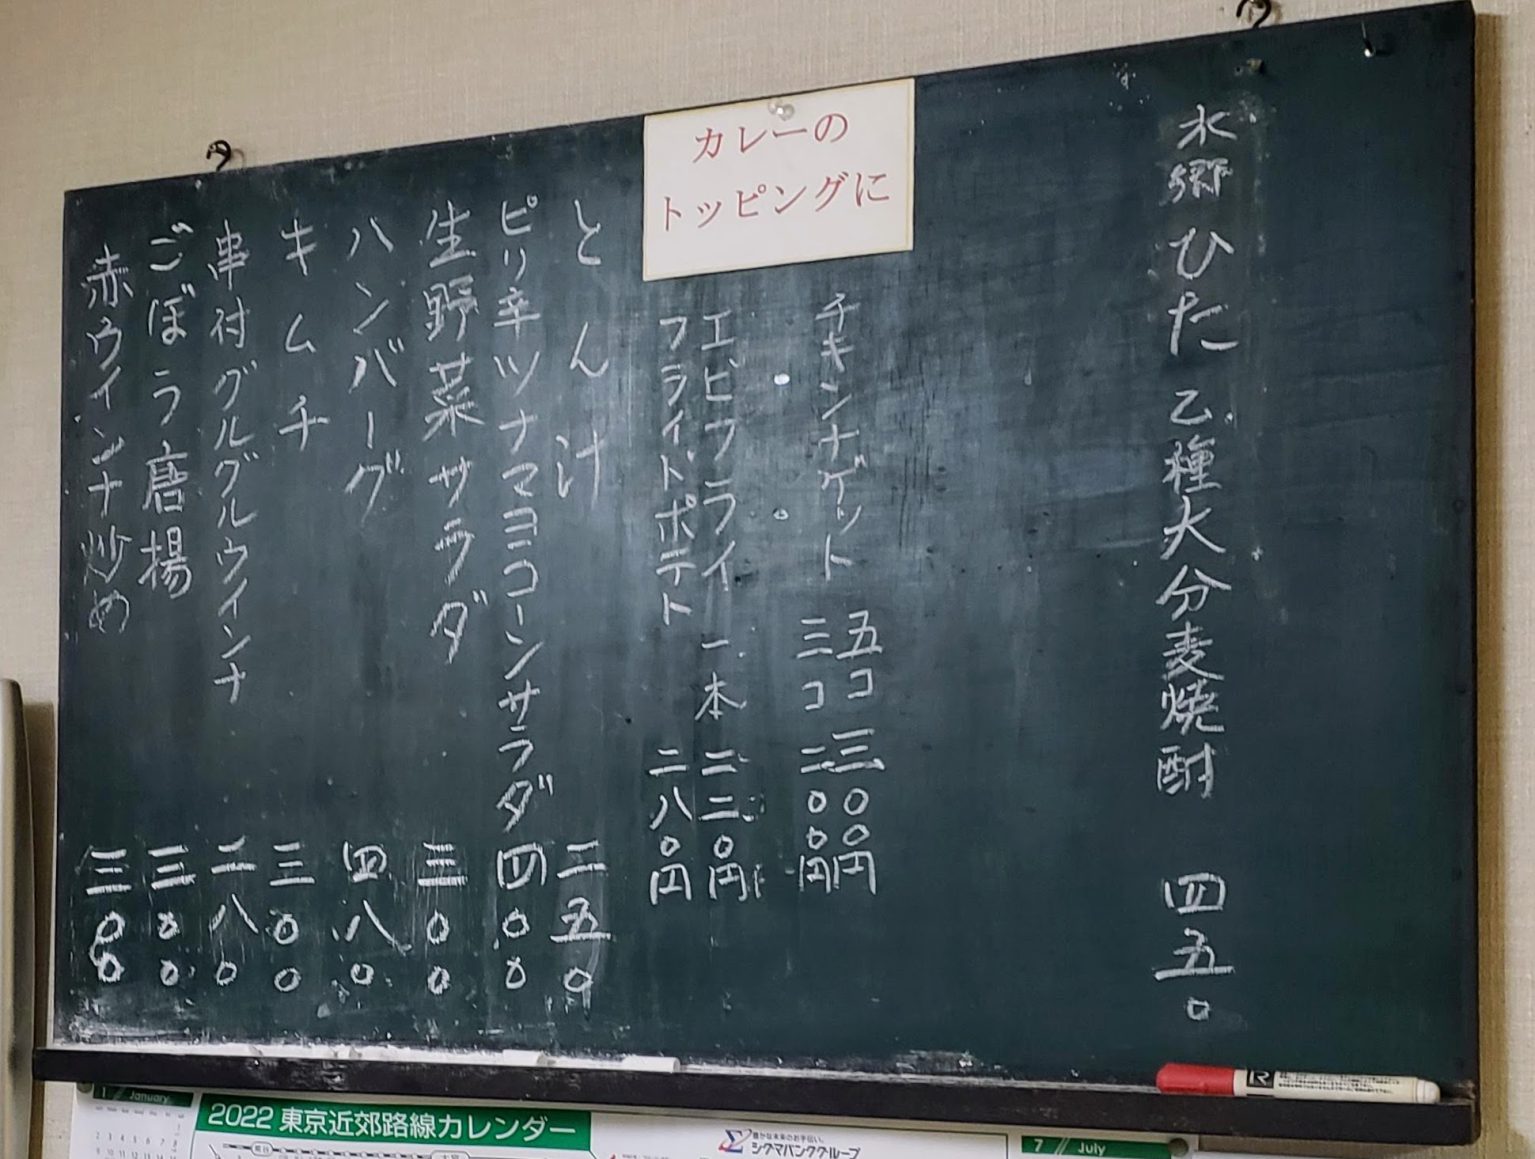 水郷ひた 乙種大分麦焼酎 四五〇
カレーの
トッピングに
チキンナゲット
五コ 三〇〇円
三コ 二〇〇円
エビフライ 一本 二二〇円
フライドポテト 二八〇円
とん汁 二五〇
ピリ辛ツナマヨコーンサラダ 四〇〇
生野菜サラダ 三〇〇
ハンバーグ 四八〇
キムチ 三〇〇
串付グルグルウインナ 二八〇
ごぼう唐揚 三〇〇
赤ウインナ炒め 三〇〇
1 January
2022 東京近郊路線カレンダー
豊かな未来のお手伝い。
シグマバンクグループ
7 July